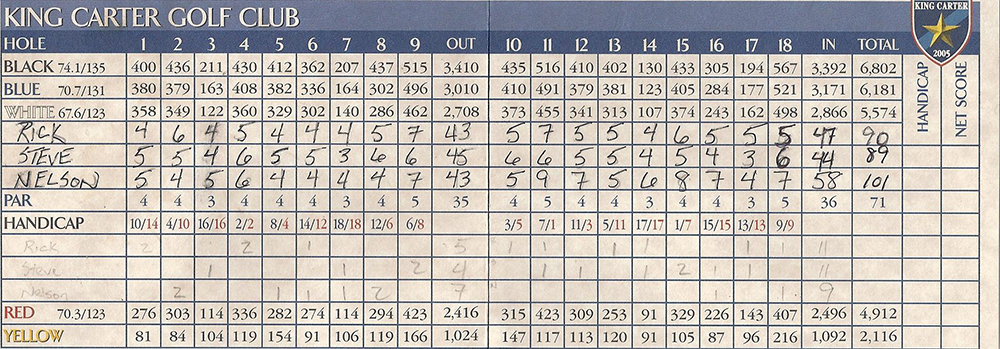 KING CARTER GOLF CLUB
KING CARTER 2005
HOLE 1 2 3 4 5 6 7 8 9 OUT 10 11 12 13 14 15 16 17 18 IN TOTAL HANDICAP NET SCORE
BLACK 74.1/135 400 436 211 430 412 362 207 437 515 3,410 435 516 410 402 130 433 305 194 567 3,392 6,802
BLUE 70.7/131 380 379 163 408 382 336 164 302 496 3,010 410 491 379 381 123 405 284 177 521 3,171 6,181
WHITE 67.6/123 358 349 122 360 329 302 140 286 462 2,708 373 455 341 313 107 374 243 162 498 2,866 5,574
RICK 4 6 4 5 4 4 4 5 7 43 5 7 5 5 4 6 5 5 5 47 90
STEVE 5 5 4 6 5 5 3 6 6 45 6 6 5 5 4 5 4 3 6 44 89
NELSON 5 4 5 6 4 4 4 4 7 43 5 9 7 5 6 8 7 4 7 58 101
PAR 4 4 3 4 4 4 3 4 5 35 4 5 4 4 3 4 4 3 5 36 71
HANDICAP 10/14 4/10 16/16 2/2 8/4 14/12 18/18 12/6 6/8 3/5 7/1 11/3 5/11 17/17 1/7 15/15 13/13 9/9
Rick 2 2 1 5 1 1 1 1 1 11
Steve 1 1 2 4 1 1 1 2 1 1 11
Nelson 2 1 1 2 7 1 1 9
RED 70.3/123 276 303 114 336 282 274 114 294 423 2,416 315 423 309 253 91 329 226 143 407 2,496 4,912
YELLOW 81 84 104 119 154 91 106 119 166 1,024 147 117 113 120 91 105 87 96 216 1,092 2,116